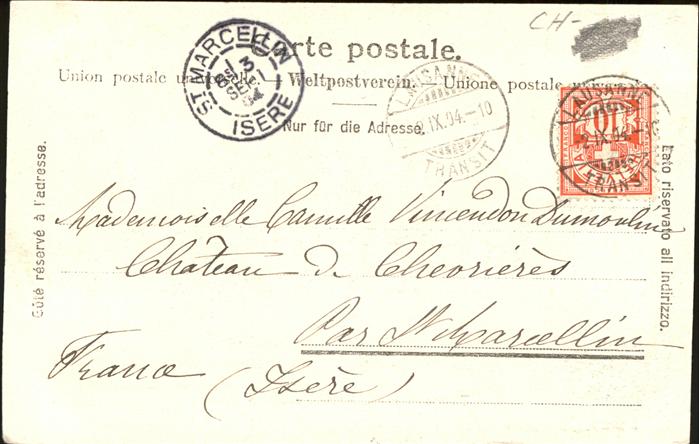 CH-
Carte postale.
Union postale universelle. — Weltpostverein. — Unione postale
Nur für die Adresse.
ST MARCELLIN
13
SEPT
04
ISERE
LAUSANNE
2.IX.04.-10
TRANSIT
LAUSANNE
10
2.IX.04.-
TRANSIT
Côté réservé à l'adresse.
Lato riservato all indirizzo.
Mademoiselle Camille Vincendon Dumoulin
Château de Chevrières
Par St Marcellin
France (Isère)